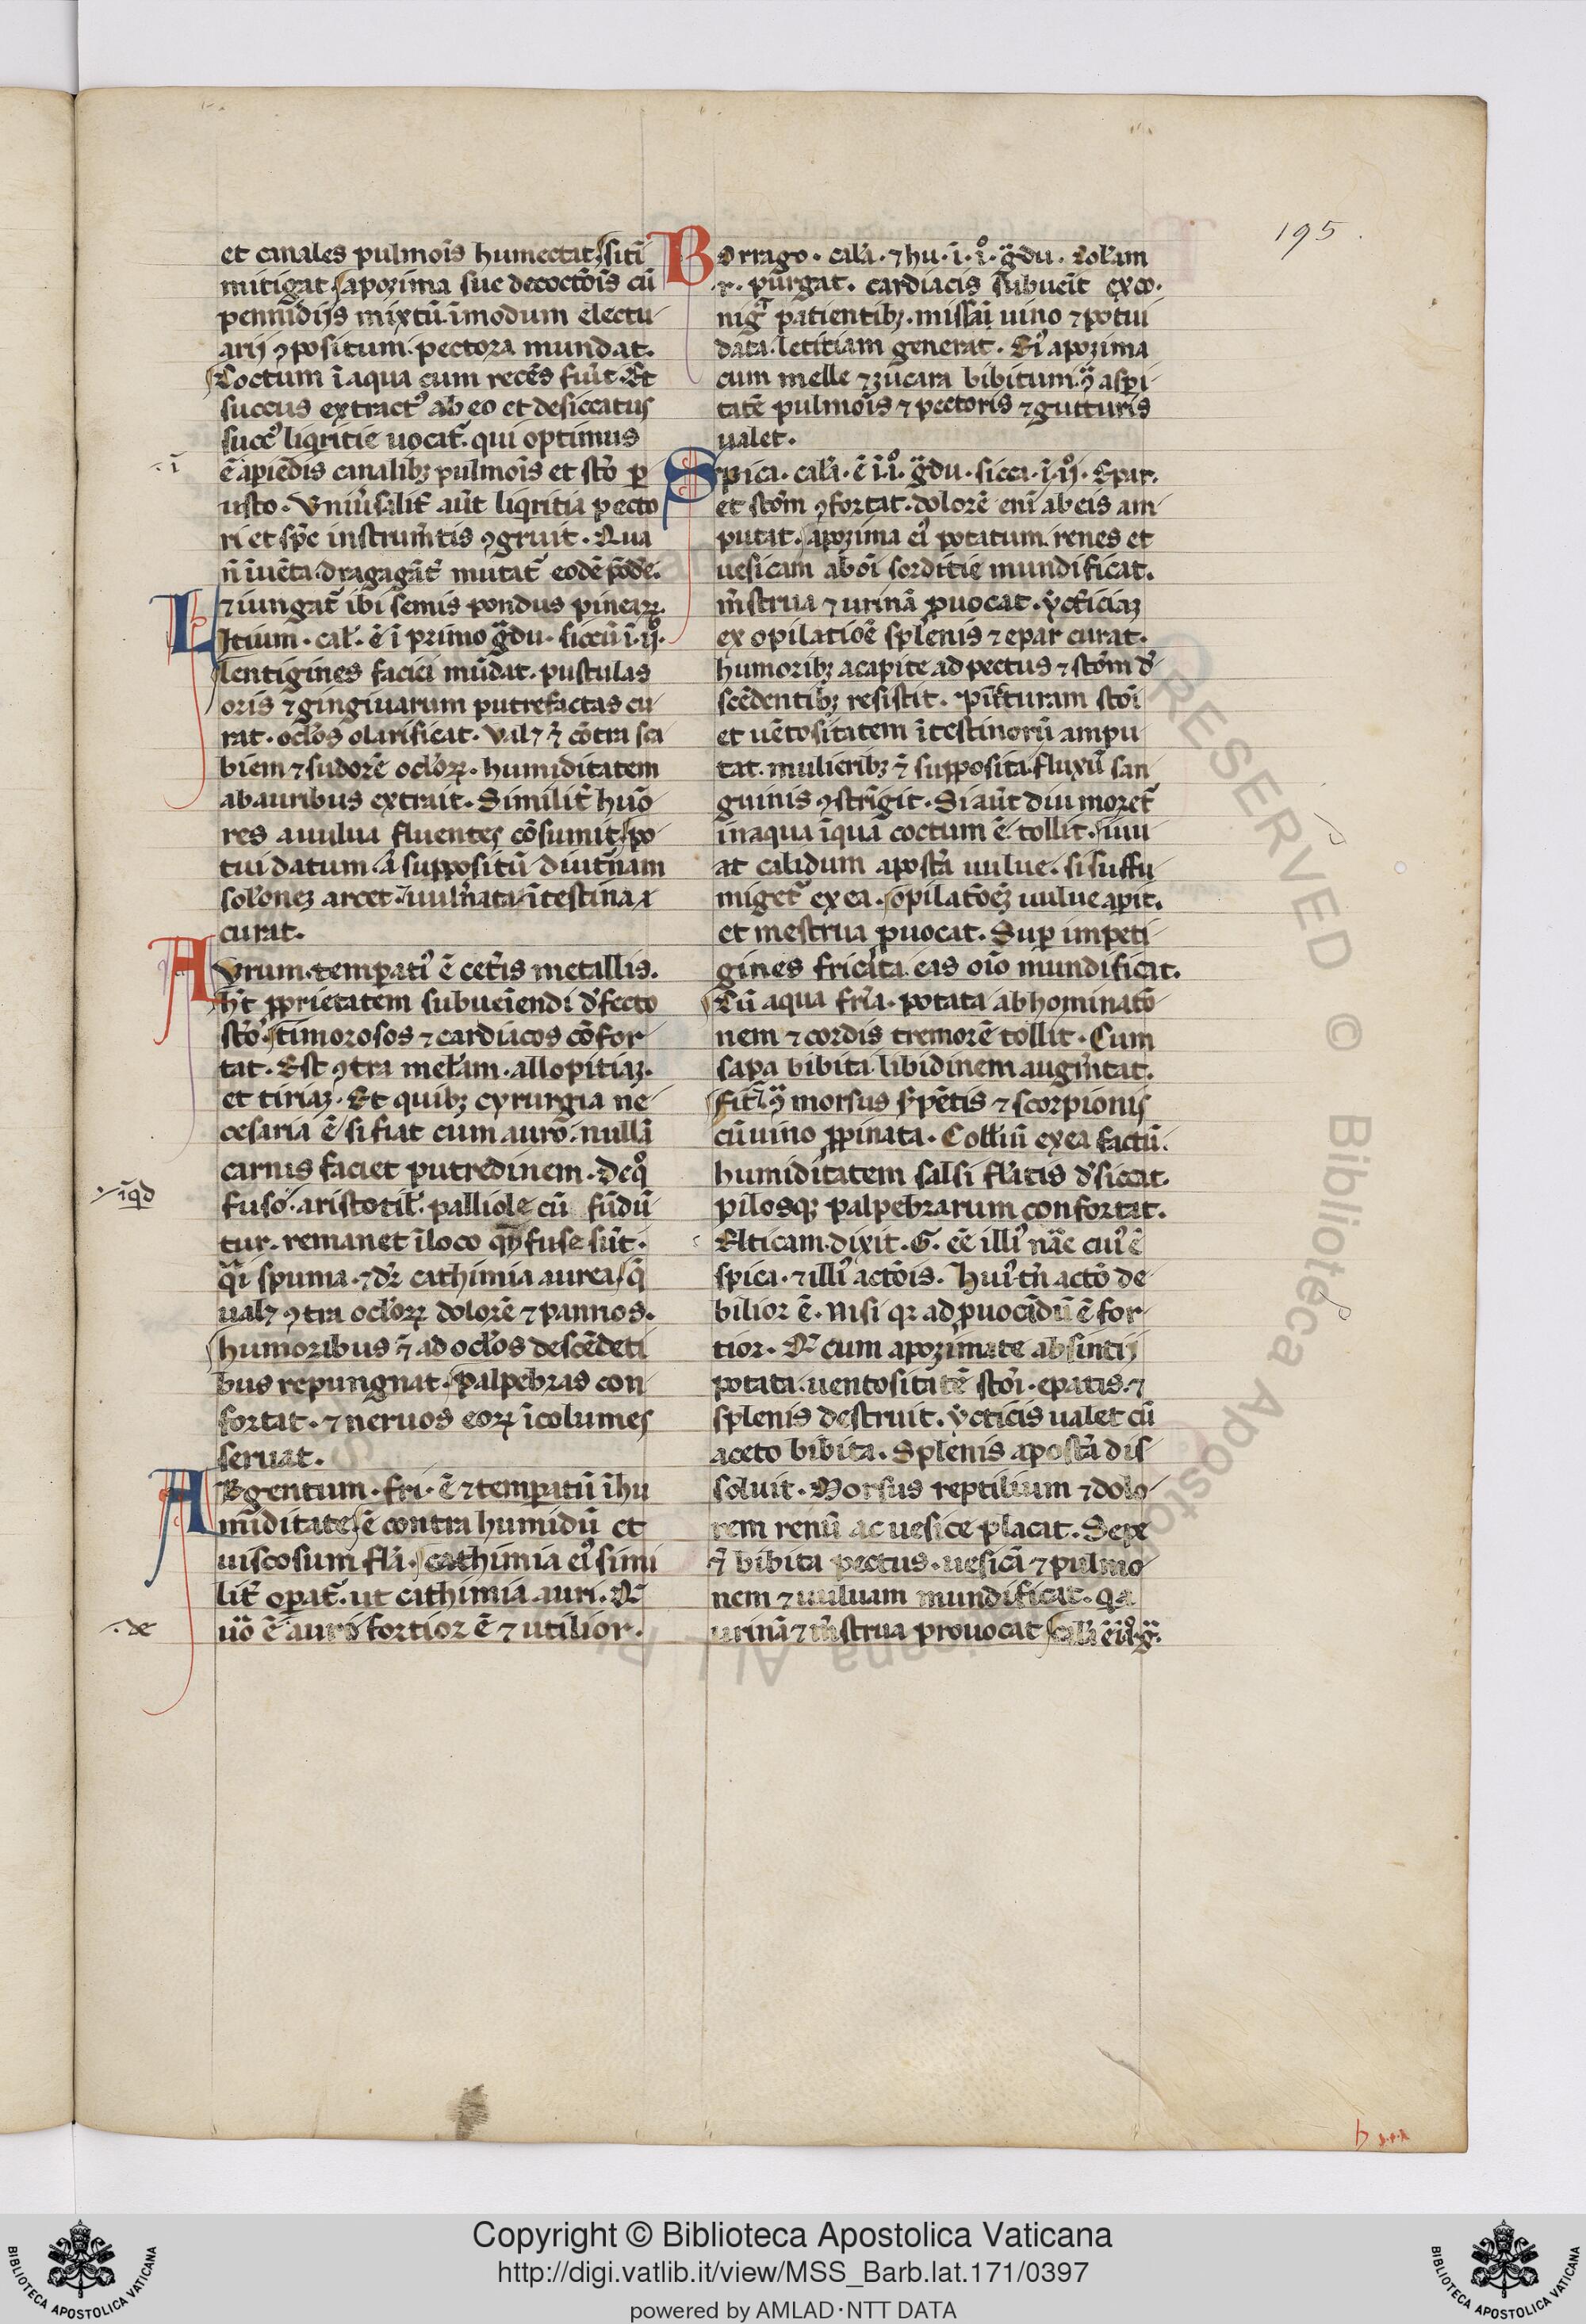 195.
et canales pulmoĩs humectat, sitĩ
mitigat apozima sue decoctõis cũ
pennidijs mixtũ ĩ modum electu
arij ꝯpositum. pectora mundat.
Coctum ĩ aqua cum recẽs fuĩt. Et
succus extractꝰ ab eo et desiccatus
succꝰ liqritie uocat̃. qui optimus
ẽ apiedis canalibꝫ pulmoĩs et sto ꝑ
·ĩ
usto. Vniũsalit̃ aũt liqritia pecto
ri et spẽ instrum̃tis ꝯgruit. Qua
ñ ĩuẽta. dragagãt̃ mutat̃ eodẽ põde.
⁊ iungat̃ ibi semis pondus pinearꝝ.
Licium. cal̃. ẽ ĩ primo g̃du. siccũ ĩ .ij.
lentigines faciei mũdat. pustulas
oris ⁊ gingiuarum putrefactas cu
rat. oclõs clarificat. Valꝫ ⁊ cõtra sca
biem ⁊ sudorẽ oclõrꝝ. humiditatem
ab auribus extrait. Similit̃ huõ
res a uulua fluentes cõsumit, po
tui datum. ł suppositũ diut̃nam
solõnez arcet. uuln̾ata ĩtestina
curat.
Avrum. temperatĩꝰ ẽ cet̃is metallis.
h̃t ꝓprietatem subueĩendi d̾fecto
stõ. timorosos ⁊ cardiacos cõfor
tat. Est ꝯtra mel̾am. allopitiaz.
et tiriaz. Et quibꝫ cyrurgia ne
cesaria ẽ si fiat cum auro. nullã
carnis faciet putredinem. de qͦ
·ĩq̃d
fuso. aristotil̾. palliole cũ fũdũ
tur. remanet ĩ loco fuse sũt.
q̃i spuma. ⁊ dr̃ cathimia aurea, q̃
ualꝫ ꝯtra oclõrꝝ dolorẽ ⁊ pannos.
humoribus ad oclõs descẽdeti
bus repungnat. palpebras con
fortat. ⁊ neruos eorꝝ ĩcolumes
seruat.
Argentum. fri. ẽ ⁊ temperatũ ĩ hu
miditate, ẽ contra humidũ et
uiscosum fla̾. cathimia eiꝰ simi
lit̃ operat̃. ut cathimia auri.
·de
uõ ẽ auro fortior ẽ ⁊ utilior.
Borrago. cal̾a. ⁊ hu. ĩ. ĩͦ. g̃du. Col̾am
r. purgat. cardiacis subueĩt ex co.
nigͣ patientibꝫ. missaĩ uino ⁊ potui
data. letitiam generat. Eiꝰ apozima
cum melle ⁊ zucara bibitum. ꝯͣ aspi
tatẽ pulmoĩs ⁊ pectoris ⁊ gutturis
ualet.
Spica. cal̾a. ẽ ĩ ĩͦ. g̃du. sicca. ĩ .ijͦ. Epar.
et stõm ꝯfortat. dolorẽ enĩ ab eis am
putat. apozima eiꝰ potatum. renes et
uesicam ab oĩ sorditie mundificat.
m̃strua ⁊ urinã ꝓuocat. ycticiaz
ex opilatiõe splenis ⁊ epar curat.
humoribꝫ a capite ad pectus ⁊ stõm d̾
scẽdentibꝫ resistit. puncturam stõĩ
et uẽtositatem ĩtestinorũ ampu
tat. mulieribꝫ supposita. fluxũ san
guinis ꝯstrĩgit. Si aũt diu moret̃
in aqua ĩ qua coctum ẽ. tollit. iuu
at calidum apost̃a uulue. si suffu
miget̃ ex ea. opilatõez uulue aperit.
et mestrua ꝓuocat. Super impeti
gines fricata eas oĩo mundificat.
Cũ aqua fri̾a. potata abhominatõ
nem ⁊ cordis tremorẽ tollit. Cum
sapa bibita libidinem augm̃tat.
fit ꝯͣ morsus s̾pẽtis ⁊ scorpionis
cũ uino ꝓpinata. Collirũ ex ea factũ.
humiditatem salsi fl̾atis d̾siccat.
pilosqꝫ palpebrarum confortat.
Elticam. dixit. G. eẽ illiꝰ nãe cuiꝰ ẽ
spica. ⁊ illiꝰ actõis. Huiꝰ tñ actõ de
bilior ẽ. nisi qr ad ꝓuocãdũ ẽ for
tior. cum apozimate absintij
potata. uentositatẽ stõĩ. epatis. ⁊
splenis destruit. ycticis ualet cũ
aceto bibita. Splenis apost̃a dis
soluit. Morsus reptilium ⁊ dolo
rem renũ ac uesice placat. Sepe
bibita pectus. uesicã ⁊ pulmo
nem ⁊ uuluam mundificat.
urinã ⁊ m̃strua prouocat
b
Copyright © Biblioteca Apostolica Vaticana
http://digi.vatlib.it/view/MSS_Barb.lat.171/0397
powered by AMLAD · NTT DATA
BIBLIOTECA APOSTOLICA VATICANA
BIBLIOTECA APOSTOLICA VATICANA